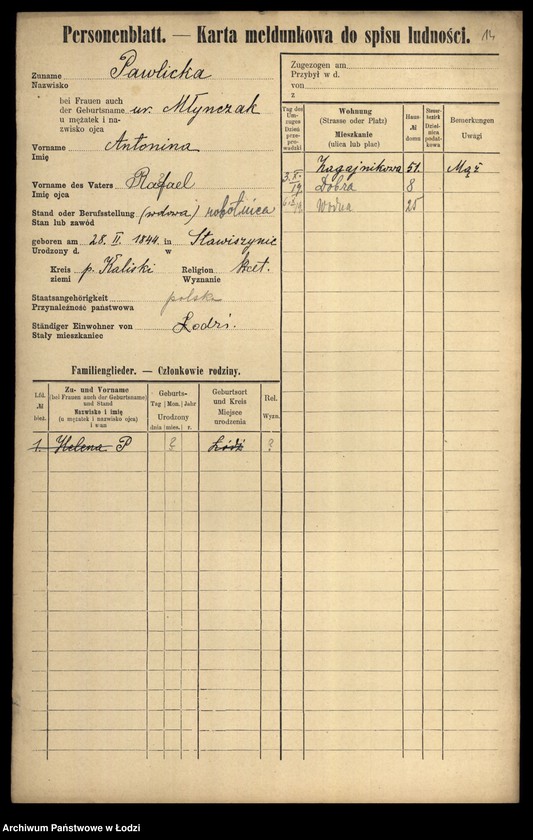 Personenblatt. — Karta meldunkowa do spisu ludności. 14
Zuname Pawlicka
Nazwisko
bei Frauen auch
der Geburtsname ur. Młynczak
u mężatek i na-
zwisko ojca
Vorname Antonina
Imię
Vorname des Vaters Rafael
Imię ojca
Stand oder Berufsstellung (wdowa) robotnica
Stan lub zawód
geboren am 28. II. 1844 in Stawiszynie
Urodzony d. w
Kreis p. Kaliski Religion kat.
ziemi Wyznanie
Staatsangehörigkeit polska
Przynależność państwowa
Ständiger Einwohner von Łodzi.
Stały mieszkaniec
Zugezogen am
Przybył w d.
von
z
Tag des Um-
zuges
Dzień
prze-
prowadzki
Wohnung
(Strasse oder Platz)
Mieszkanie
(ulica lub plac)
Haus-
№
domu
Steuer-
bezirk
Dziel-
nica
podat-
kowa
Bemerkungen
Uwagi
Zagajnikowa 51. Mąż
3.X. 19 Dobra 8
Wodna 25
Familienglieder. — Członkowie rodziny.
Lfd.
№
bież.
Zu- und Vorname
(bei Frauen auch der Geburtsname)
und Stand
Nazwisko i imię
(u mężatek i nazwisko ojca)
i stan
Geburts-
Tag Mon. Jahr
Urodzony
dnia mies. r.
Geburtsort
und Kreis
Miejsce
urodzenia
Rel.
Wyzn.
1. Helena P ? Łódź ?
Archiwum Państwowe w Łodzi